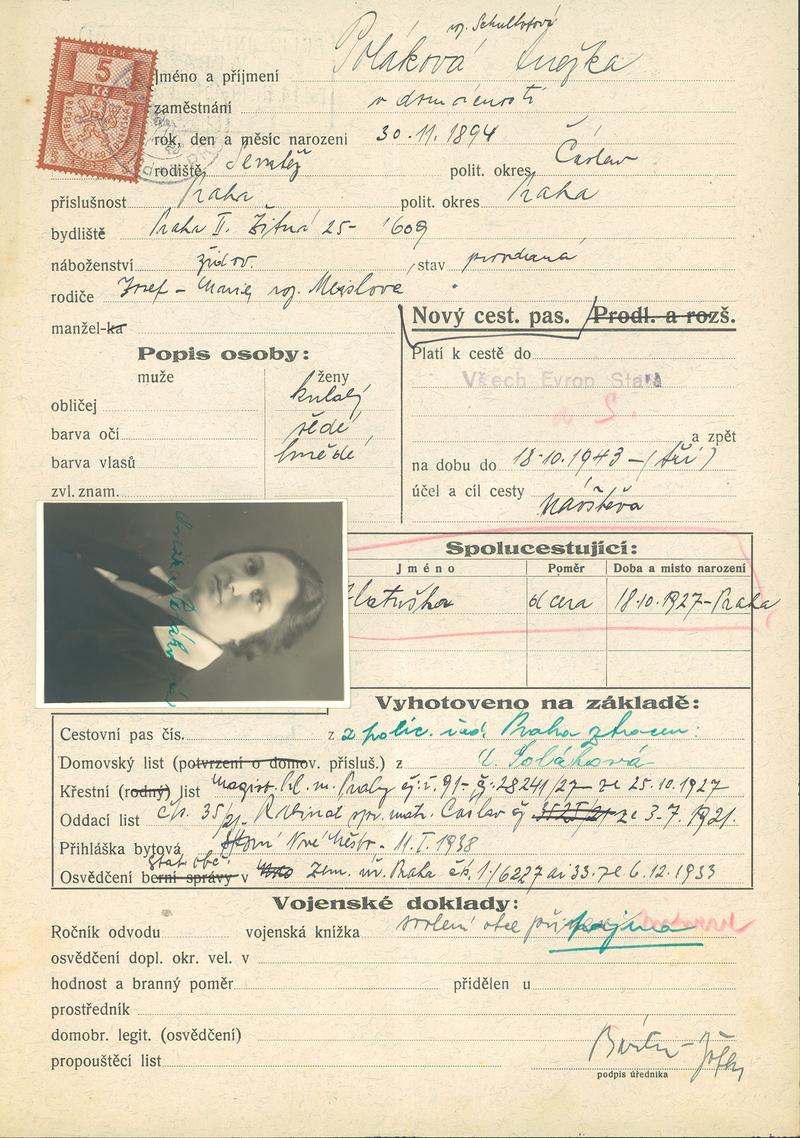 roz. Schullofová
Poláková Anežka
KOLEK
5
Kč
Jméno a příjmení
zaměstnání v domácnosti
rok, den a měsíc narození 30.11.1894
rodiště polit. okres Čáslav
příslušnost Praha polit. okres Praha
bydliště Praha II. Žitná 25- 1609
náboženství židov. stav provdaná
rodiče Josef - Marie roz.
manžel-ka
Nový cest. pas. Prodl. a rozš.
Popis osoby:
muže ženy
obličej kulatý
barva očí šedé
barva vlasů hnědé
zvl. znam.
Platí k cestě do
Všech Evrop Států
a zpět
na dobu do 18.10.1943 - (tři)
účel a cíl cesty návštěva
Spolucestující:
Jméno Poměr Doba a místo narození
dcera 18.10.1927-Praha
Vyhotoveno na základě:
Cestovní pas čís. z 2 polic. řed. Praha ztracen:
Domovský list (potvrzení o domov. přísluš.) z
Poláková
Křestní (rodný) list Magist. hl. m. Prahy čj: I. 91- č: 28241/27 - ze 25.10.1927
Oddací list čp. 35/21. Rabinát Čáslav ze 3.7.1921.
Přihláška bytová Nové Město - 11.I.1938
stát. obč.
Osvědčení berní správy v Zem. úř. Praha čís. 1/6227 ai 33. ze 6.12.1933
Vojenské doklady:
Ročník odvodu vojenská knížka svolení otce
osvědčení dopl. okr. vel. v
hodnost a branný poměr přidělen u
prostředník
domobr. legit. (osvědčení)
propouštěcí list
podpis úředníka